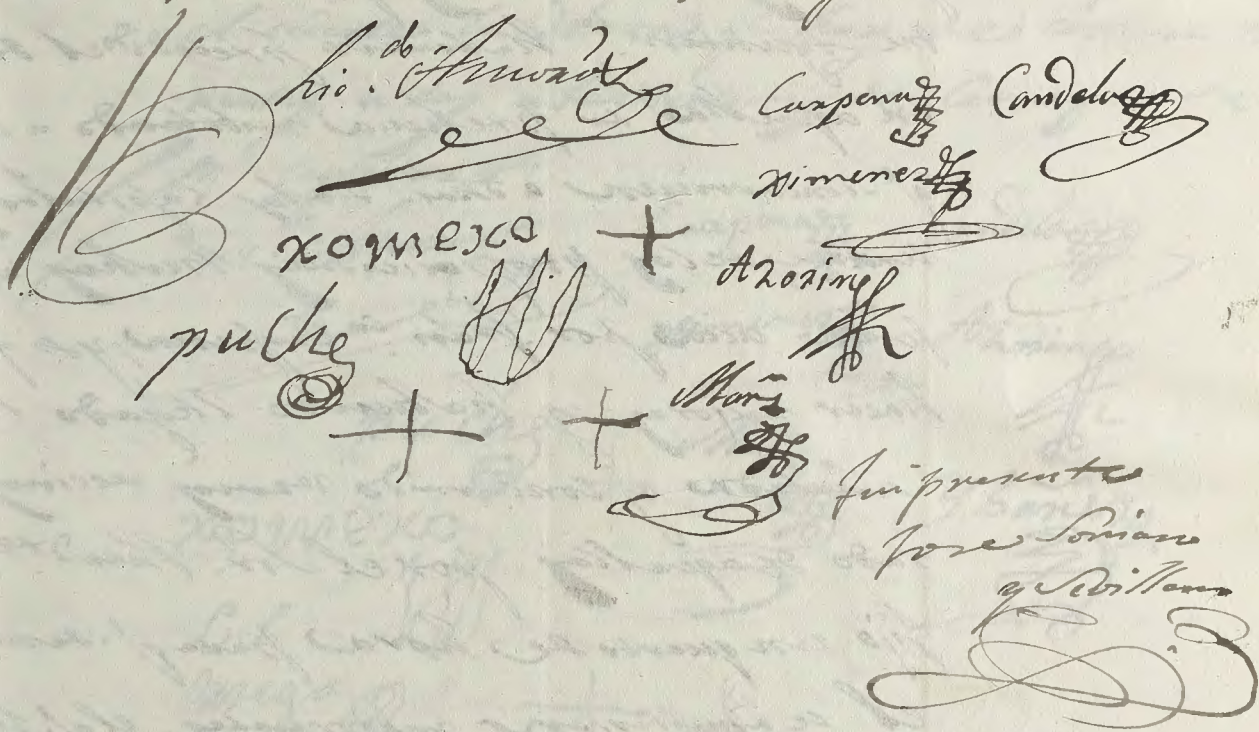 Lic.do Amorós
Carpena
Candela
Ximenez
Romero +
Azorin
puche
+ + Marñ
Fui presente
Jose Soriano
y Sevillano